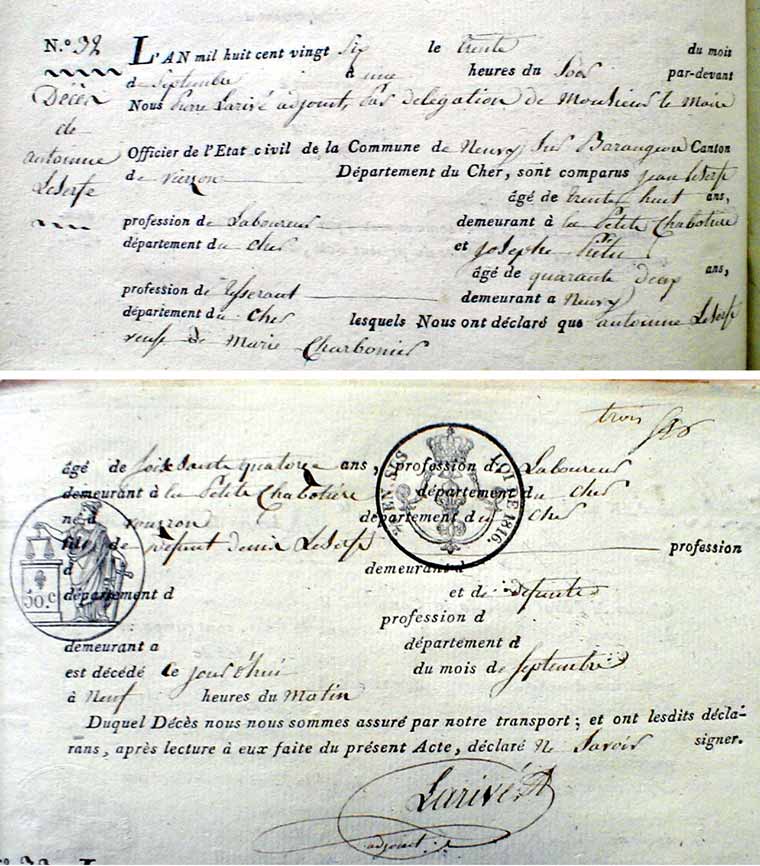 N.° 32
Décès
de
antoinne
LeSerfe
L'AN mil huit cent vingt Six le trente du mois
de Septembre à une heures du Soir par-devant
Nous pierre Larivé adjoint, par delegation de Monsieur le Maire
Officier de l'Etat civil de la Commune de Neuvy Sur Barangeon Canton
de vierzon Département du Cher, sont comparus jean LeSerfe
âgé de trente huit ans,
profession de Laboureur demeurant à la Petite Chabotiere
département du cher et joseph
âgé de quarante deux ans,
profession de tisserant demeurant a Neuvy
département du cher lesquels Nous ont déclaré que antoinne LeSerfe
veuf de Marie Charbonier
trois
âgé de Soixante quatorze ans, profession de Laboureur
demeurant à la Petite Chabotiére département du Cher
né à vouzron département du Cher
fils de defunt denix LeSerfe profession
d demeurant d
département d et de defunte
profession d
demeurant a département d
est décédé Ce jourd'hui du mois de Septembre
à Neuf heures du Matin
Duquel Décès nous nous sommes assuré par notre transport; et ont lesdits décla-
rans, après lecture à eux faite du présent Acte, déclaré Ne Savoir signer.
Larivé
adjoint
50.c
EN SUS
LOI DE 1816.